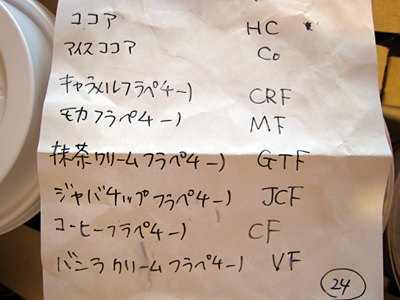 ココア HC
アイスココア Co
キャラメルフラペチーノ CRF
モカフラペチーノ MF
抹茶クリームフラペチーノ GTF
ジャバチップフラペチーノ JCF
コーヒーフラペチーノ CF
バニラクリームフラペチーノ VF
24